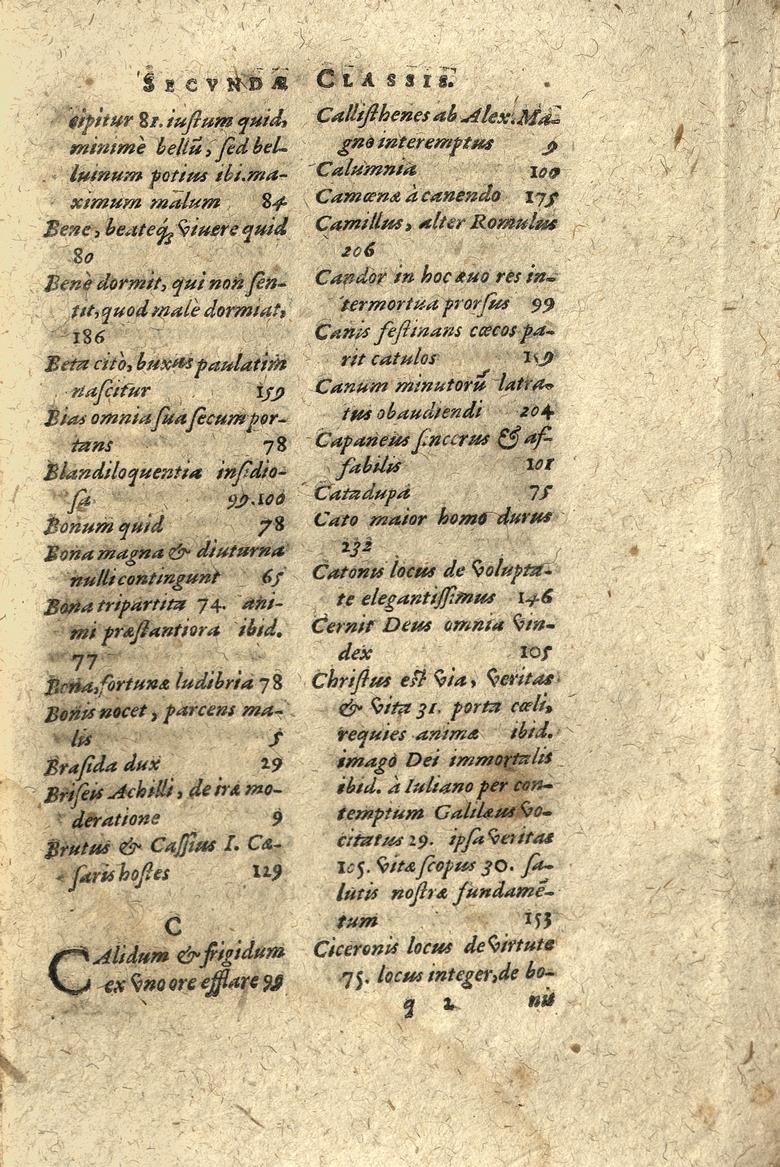 SECVNDÆ CLASSIS.
cipitur 81. iustum quid,
minimè bellũ, sed bel-
luinum potius ibi. ma-
ximum malum 84
Bene, beateq́; viuere quid
80
Benè dormit, qui non sen-
tit, quod malè dormiat,
186
Beta citò, buxus paulatim
nascitur 159
Bias omnia sua secum por-
tans 78
Blandiloquentia insidio-
sa 99.100
Bonum quid 78
Bona magna & diuturna
nulli contingunt 65
Bona tripartita 74. ani-
mi præstantiora ibid.
77
Bona, fortunæ ludibria 78
Bonis nocet, parcens ma-
lis 5
Brasida dux 29
Briseis Achilli, de iræ mo-
deratione 9
Brutus & Cassius I. Cæ-
saris hostes 129
C
CAlidum & frigidum
ex vno ore efflare 99
Callisthenes ab Alex. Ma-
gno interemptus 9
Calumnia 100
Camœnæ à canendo 175
Camillus, alter Romulus
206
Candor in hoc æuo res in-
termortua prorsus 99
Canis festinans cæcos pa-
rit catulos 159
Canum minutorũ latra-
tus obaudiendi 204
Capaneus sinccrus & af-
fabilis 101
Catadupa 75
Cato maior homo durus
232
Catonis locus de volupta-
te elegantissimus 146
Cernit Deus omnia vin-
dex 105
Christus est via, veritas
& vita 31. porta cœli,
requies animæ ibid.
imago Dei immortalis
ibid. à Iuliano per con-
temptum Galilæus vo-
citatus 29. ipsa veritas
105. vitæ scopus 30. sa-
lutis nostræ fundamẽ-
tum 153
Ciceronis locus de virtute
75. locus integer, de bo-
q 2 nis